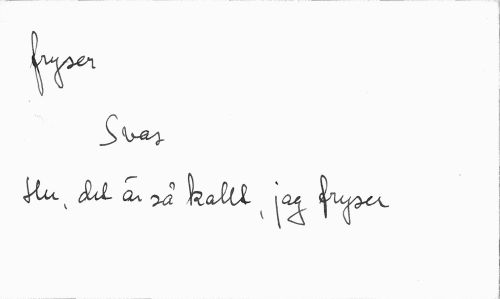 fryser
Svas
Hu, det är så kallt, jag fryser